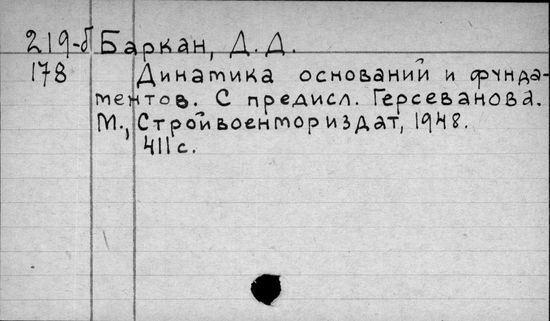 219-б Баркан, Д. Д.
178 Динамика оснований и фунда-
ментов. С предисл. Герсеванова.
М., Стройвоенмориздат, 1948.
411 с.